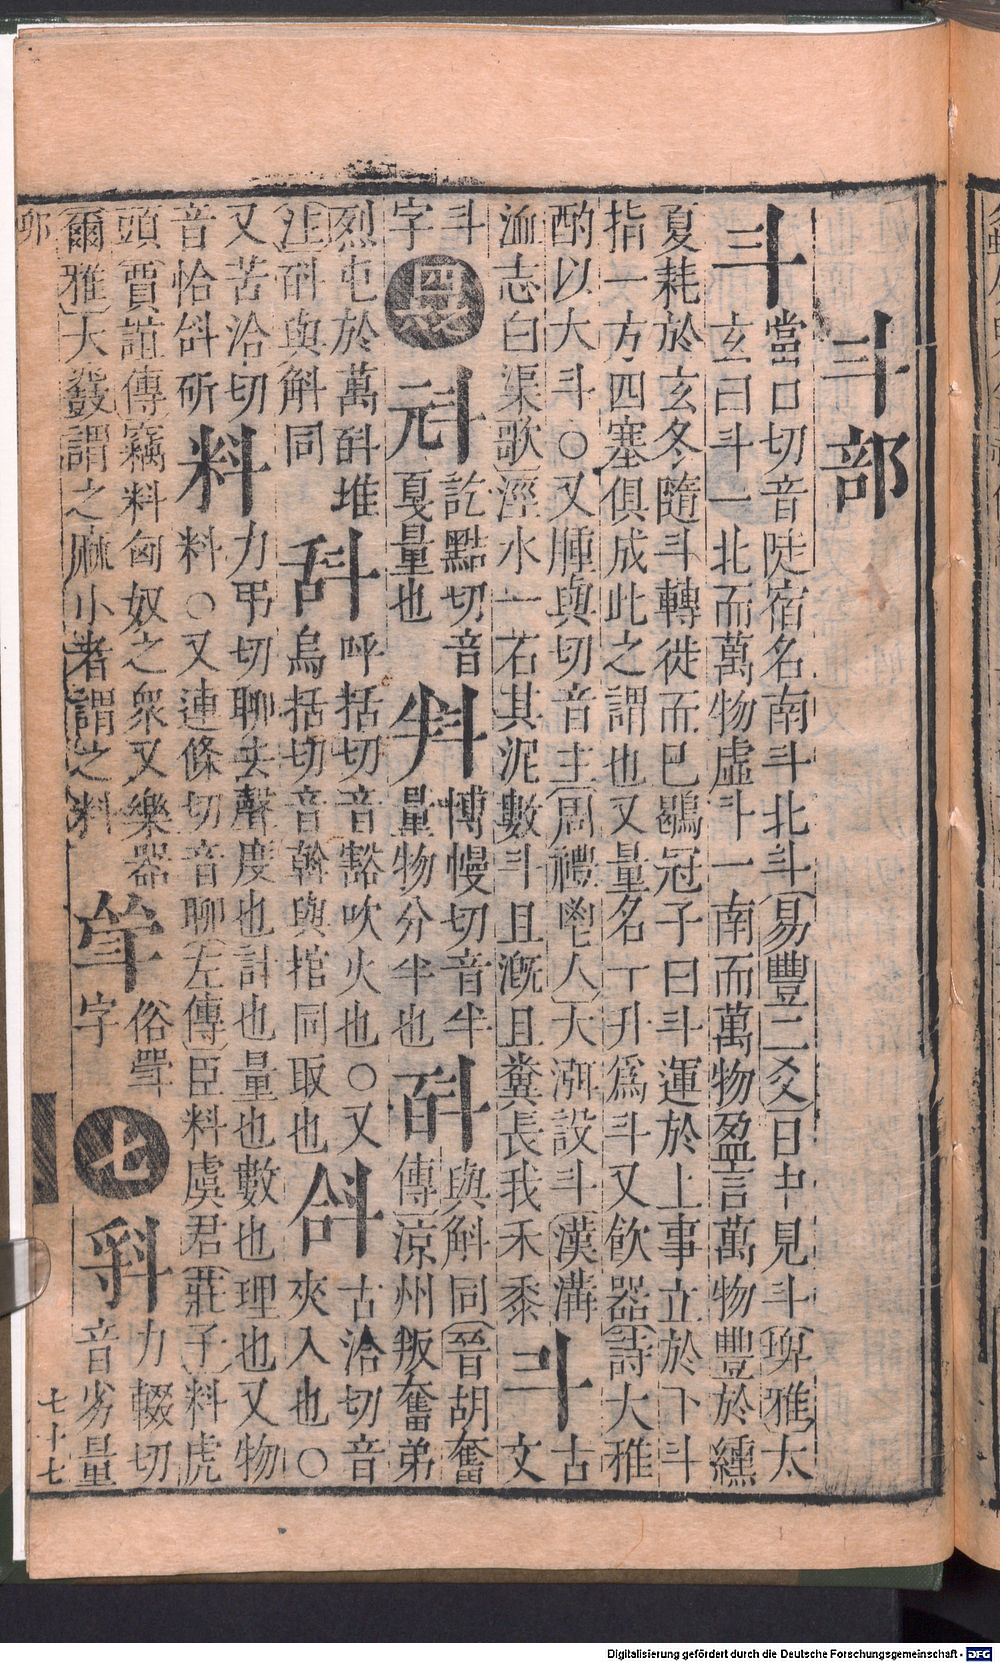 斗部
斗當口切音陡宿名南斗北斗易豐二爻日中見斗埤雅太
玄曰斗一北而萬物虛斗一南而萬物盈言萬物豐於纁
夏耗於玄冬隨斗轉徙而巳鶡冠子曰斗運於上事立於下斗
指一方四塞俱成此之謂也又量名十升爲斗又飲器詩大雅
酌以大斗○又腫與切音主周禮鬯人大渳設斗漢溝
洫志白渠歌涇水一石其泥數斗且漑且糞長我禾黍
斗古文
斗字
四畫
䡾訖黠切音戛量也
料博慢切音半量物分半也
㪷與斛同晉胡奮傳涼州叛奮弟
烈屯於萬㪷堆
注㪷與斛同
㪶呼括切音豁吹火也○又
烏括切音斡與捾同取也
㪉古洽切音夾入也○
又苦洽切音恰㪉斫
料力弔切聊去聲度也計也量也數也理也又物
料○又連條切音聊左傳臣料虞君莊子料虎
頭賈誼傳竊料匈奴之衆又樂器
爾雅大鼗謂之麻小者謂之料
斚俗斝字
七
㪨力輟切音劣量
卯
七十七
Digitalisierung gefördert durch die Deutsche Forschungsgemeinschaft - DFG